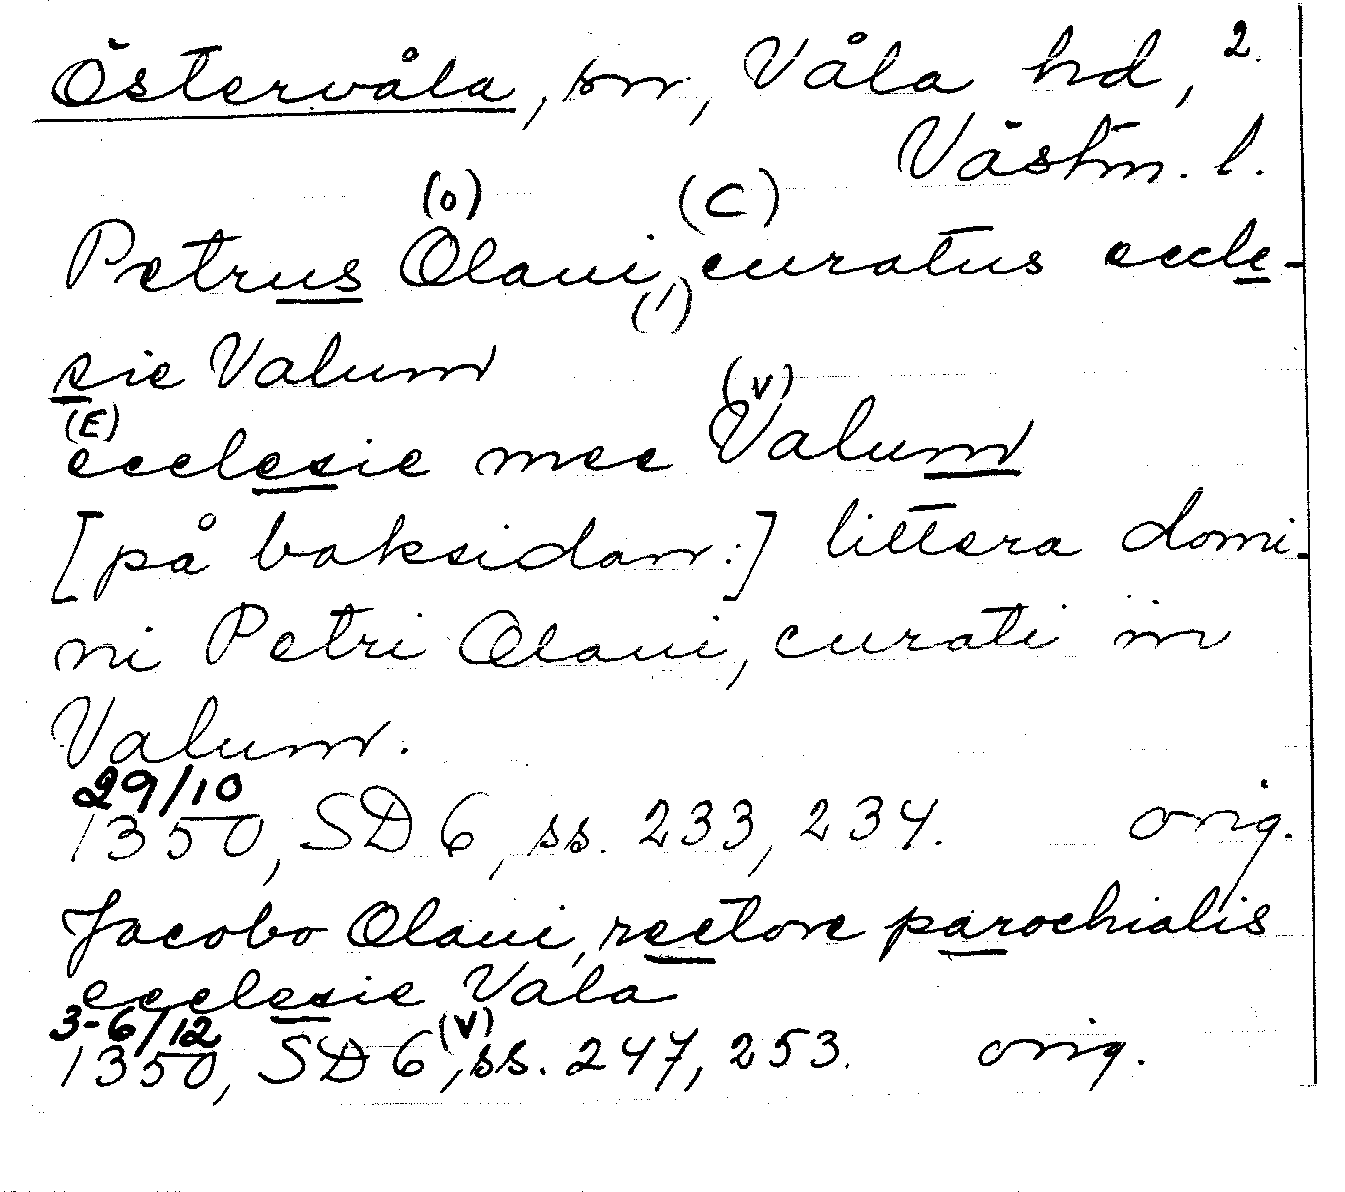 Östervåla, sn, Våla hd, 2.
Västm. l.
(o) (C)
Petrus Olaui, curatus eccle-
(/)
sie Valum
(E) (v)
ecclesie mee Valum
[på baksidan:] littera domi-
ni Petri Olaui, curati in
Valum.
29/10
1350, SD 6, ss. 233, 234. orig.
Jacobo Olaui, rectore parochialis
ecclesie Vala
3-6/12 (v)
1350, SD 6, ss. 247, 253. orig.